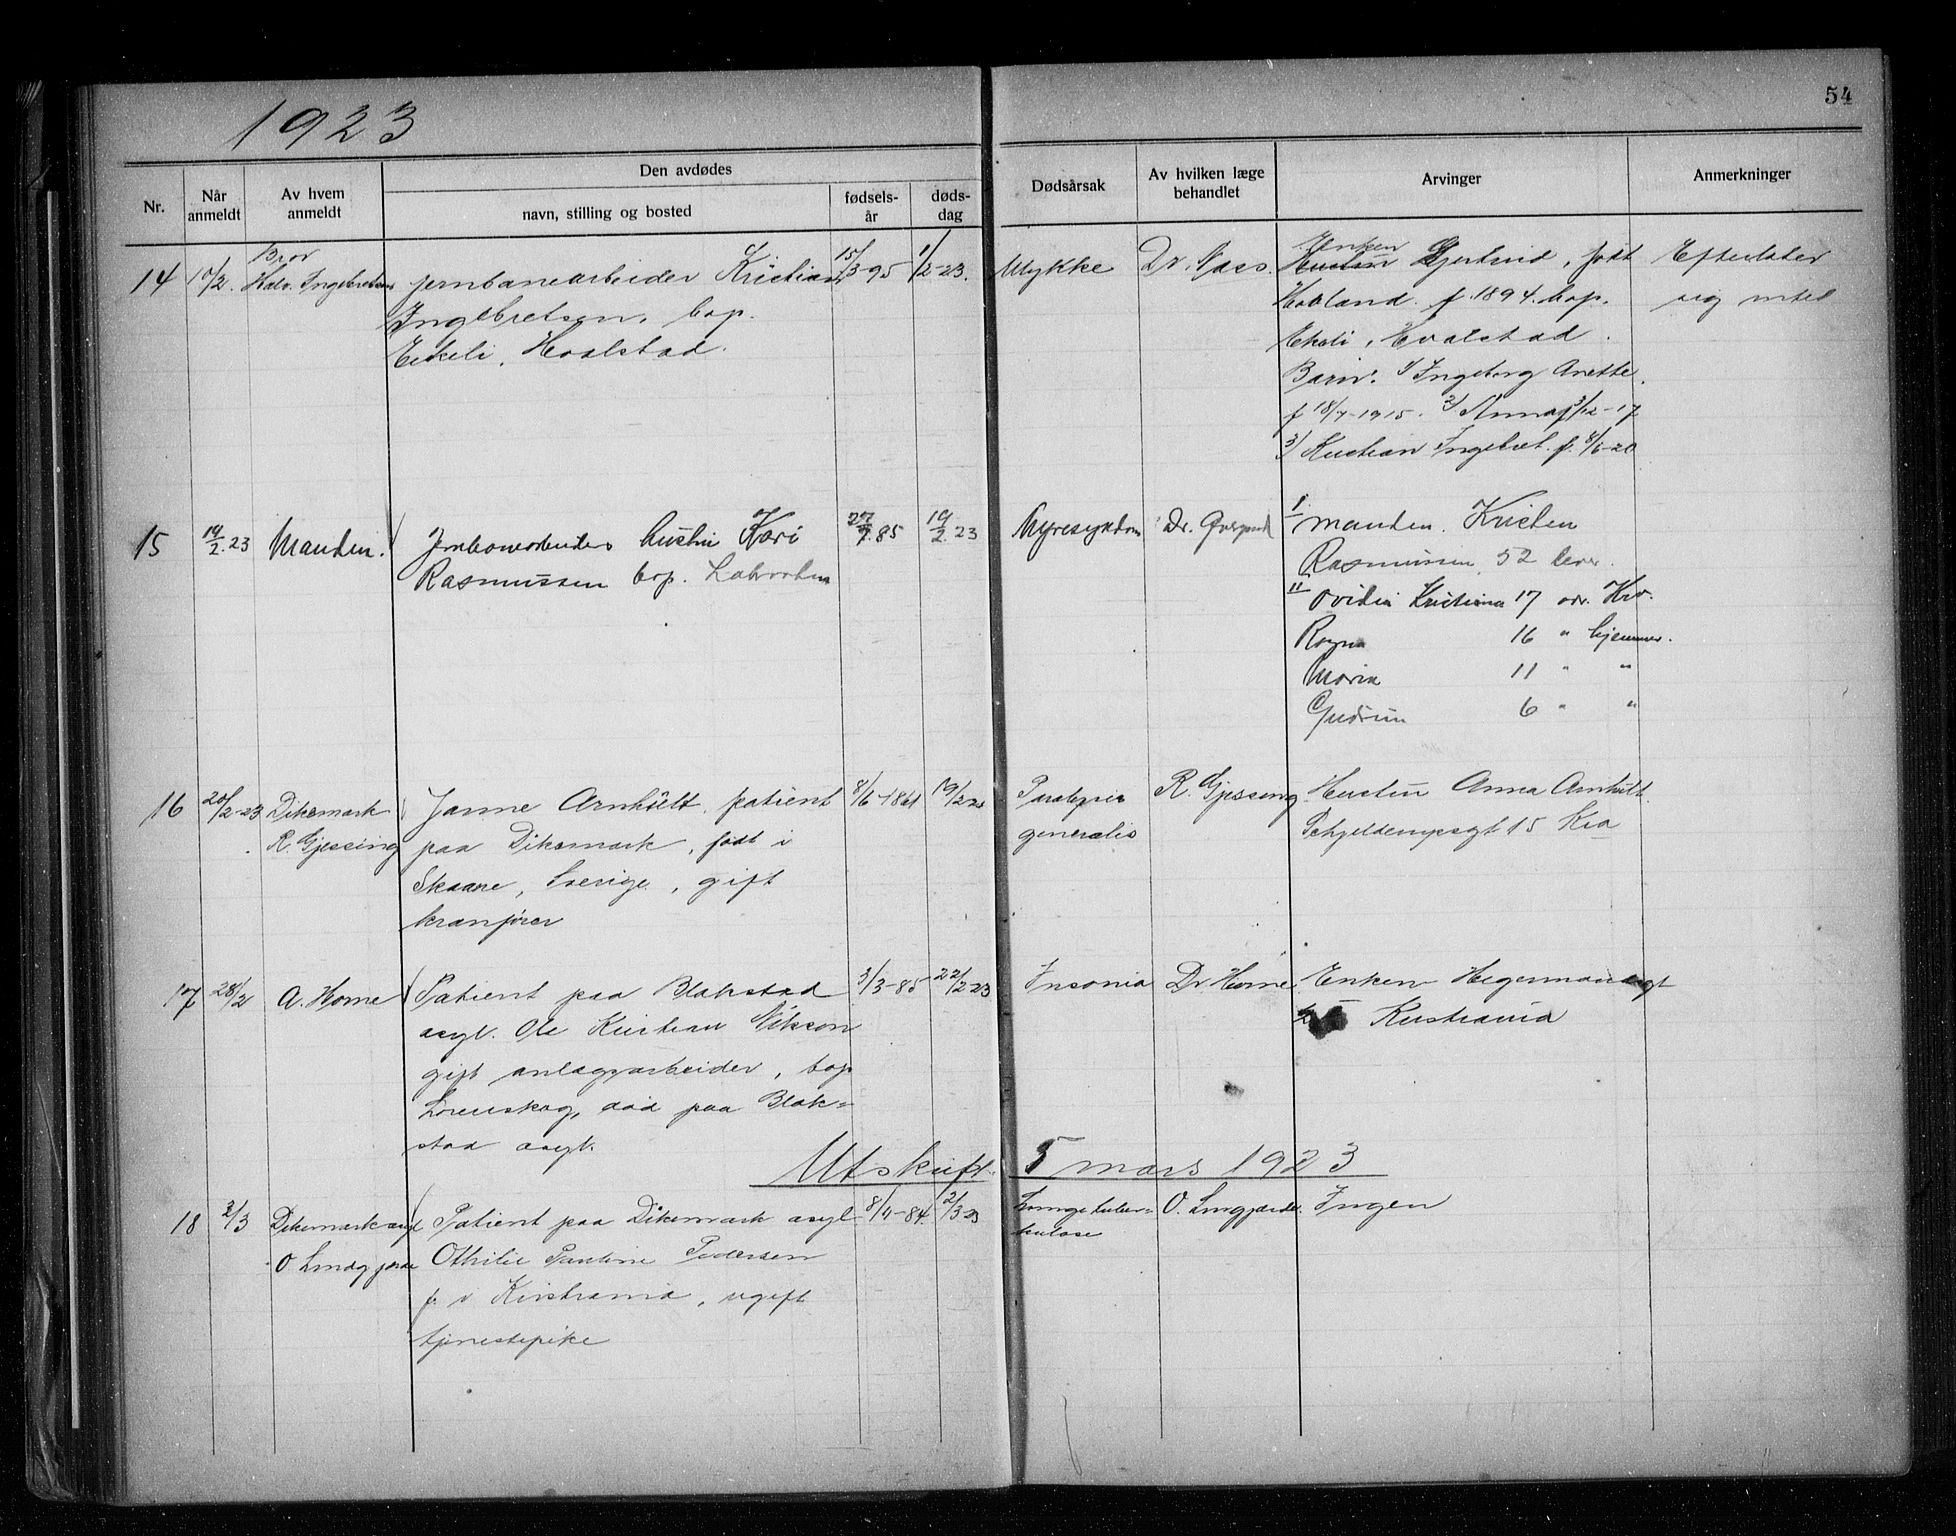 1923
54
Den avdødes
Nr. Når anmeldt Av hvem anmeldt navn, stilling og bosted fødsels-år døds-dag Dødsårsak Av hvilken læge behandlet Arvinger Anmerkninger
14 10/2. Bror Halv. Ingebretsen
jernbanearbeider Kristian
Ingebretsen, bop.
Eikeli, Hvalstad.
15/3-95 1/2-23.
Ulykke
Dr.
Enken
Hustru Gjertrud, født
Hobland f. 1894. bop.
Ekeli, Hvalstad.
Barn: 1) Ingeborg Anette
f 18/7-1915. 2) Anna f 3/12-17
3) Kristian Ingebret. f. 8/6-20
Efterlater
sig intet
15 19/2.23 Manden.
Jernbanearbeiders hustru Kari
Rasmussen bop.
27/7.85 19/2.23
Nyresygdom
Dr.
I. manden. Kristen
Rasmussen, 52 lever.
II Ovidia Kristiana 17 Kr.
Ragna 16 " hjemme.
Maria 11 " "
Gudrun 6 " "
16 20/2-23 Dikemark
R. Gjessing
Janne Arnhült, patient
paa Dikemark, født i
Skaane, Sverige, gift
kranfører
8/6-1861 19/2 23
Paralysis
generalis
R. Gjessing
Hustru Anna Arnhült.
Schjeldempsgt 15 Kra
17 28/2 A. Horne
Patient paa Blakstad
asyl. Ole Kristian Nilsson
gift anlægsarbeider, bop
Lørenskog, død paa Blak=
stad asyl.
3/3-85 22/2-23
Insonia
Dr Horne
Enken Hegermansgt
Kristiania
Utskrift 5 mars 1923
18 2/3 Dikemark asyl
O Lingjærde
Patient paa Dikemark asyl
Othilie Pauline Pedersen
f. i Kristiania, ugift
tjenestepike
8/4-84. 2/3 23
Lungetuber=
kulose
O. Lingjærde.
Ingen